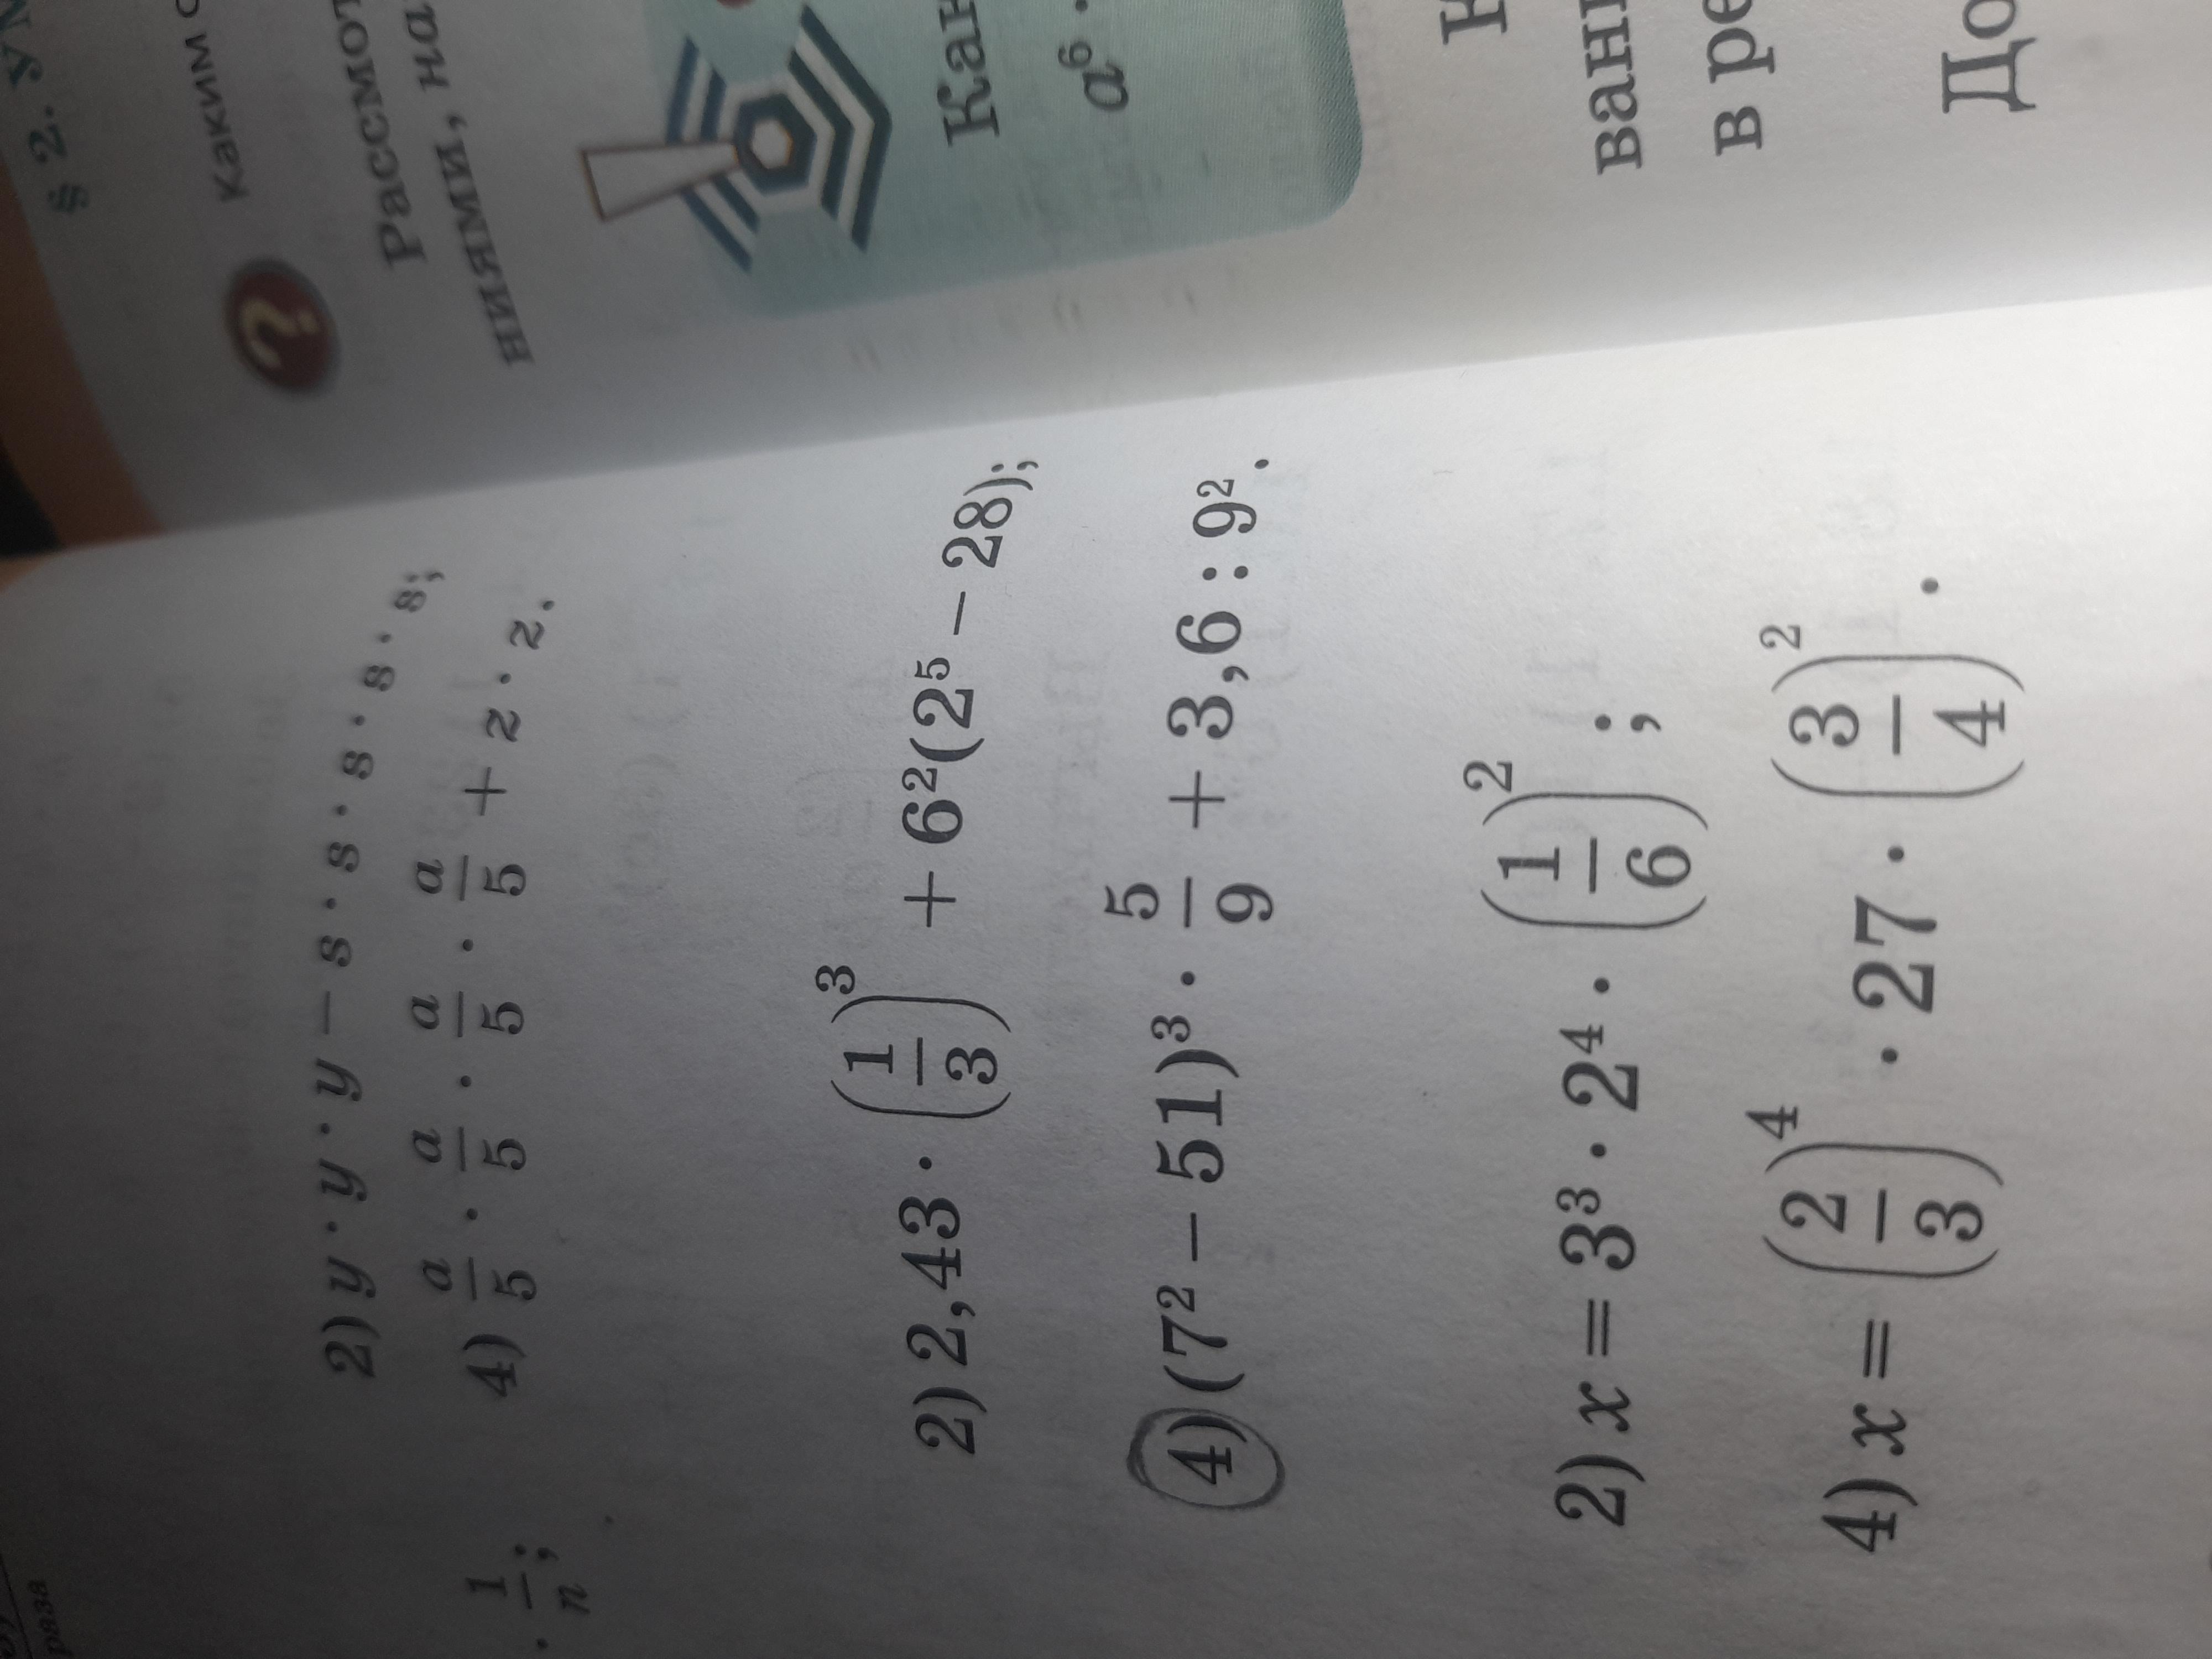 раза
· 1/n;
2) y · y · y − s · s · s · s · s;
4) a/5 · a/5 · a/5 · a/5 + z · z.
2) 2,43 · (1/3)³ + 6²(2⁵ − 28);
4) (7² − 51)³ · 5/9 + 3,6 : 9².
2) x = 3³ · 2⁴ · (1/6)²;
4) x = (2/3)⁴ · 27 · (3/4)².
§ 2. УМ
? Каким о
Рассмот
ниями, на
Как
a⁶ ·
Н
вани
в ре
До